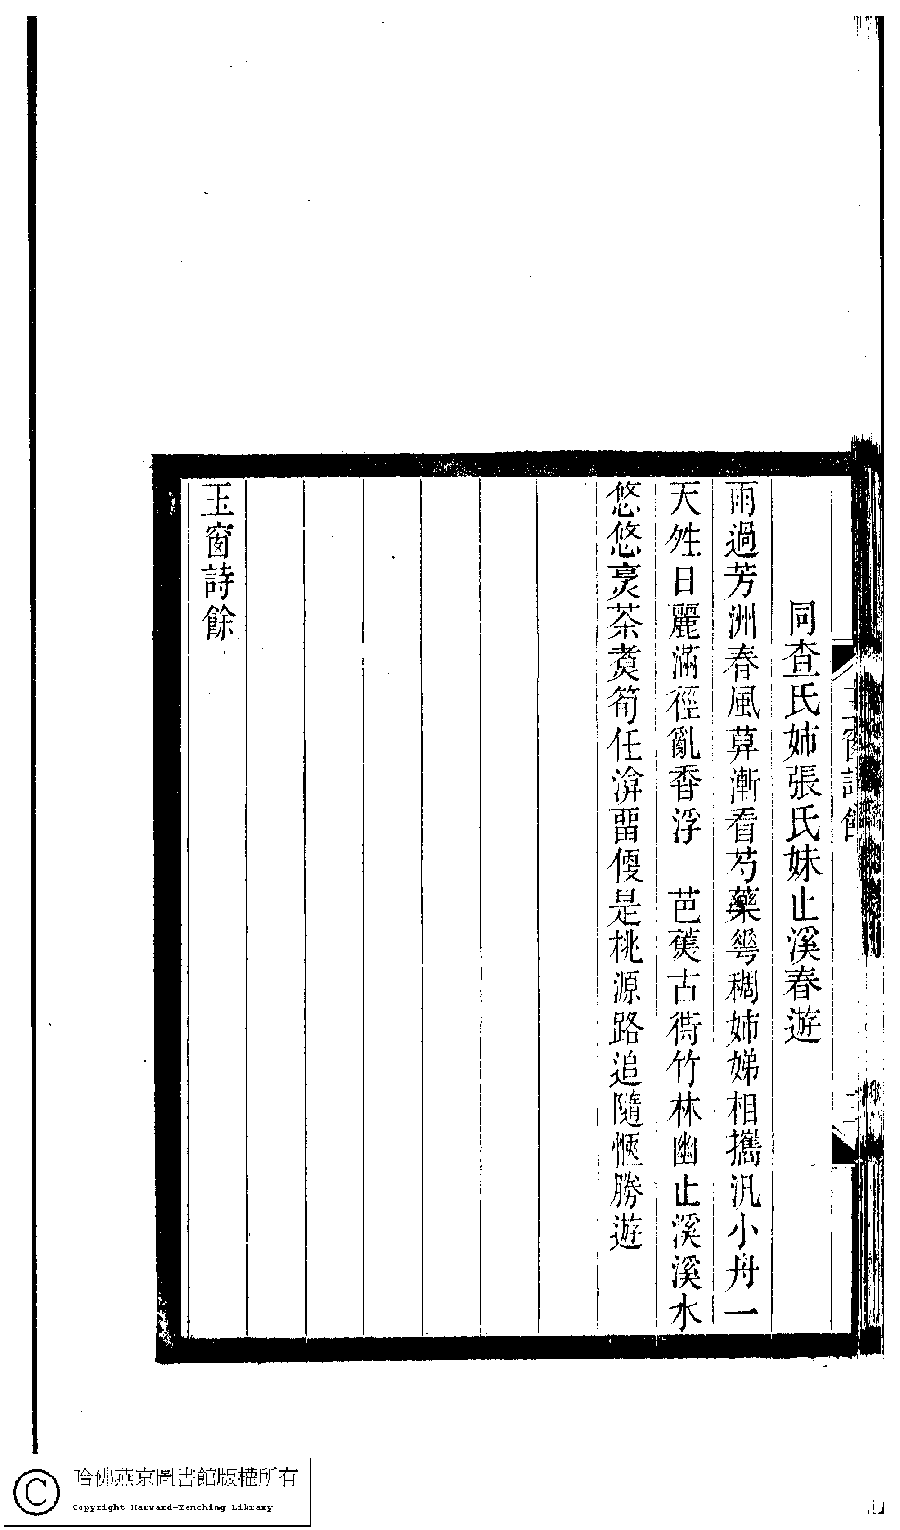 同查氏姊張氏妹止溪春遊
雨過芳洲春風𦱤漸看芍藥𠌶稠姊娣相攜汎小舟一
天夝日麗滿徑亂香浮　芭蕉古衖竹林幽止溪溪水
悠悠烹茶煑筍任淹畱便是桃源路追隨愜勝遊
玉窗詩餘
玉窗詩餘
哈佛燕京圖書館版權所有
Copyright Harvard-Yenching Library